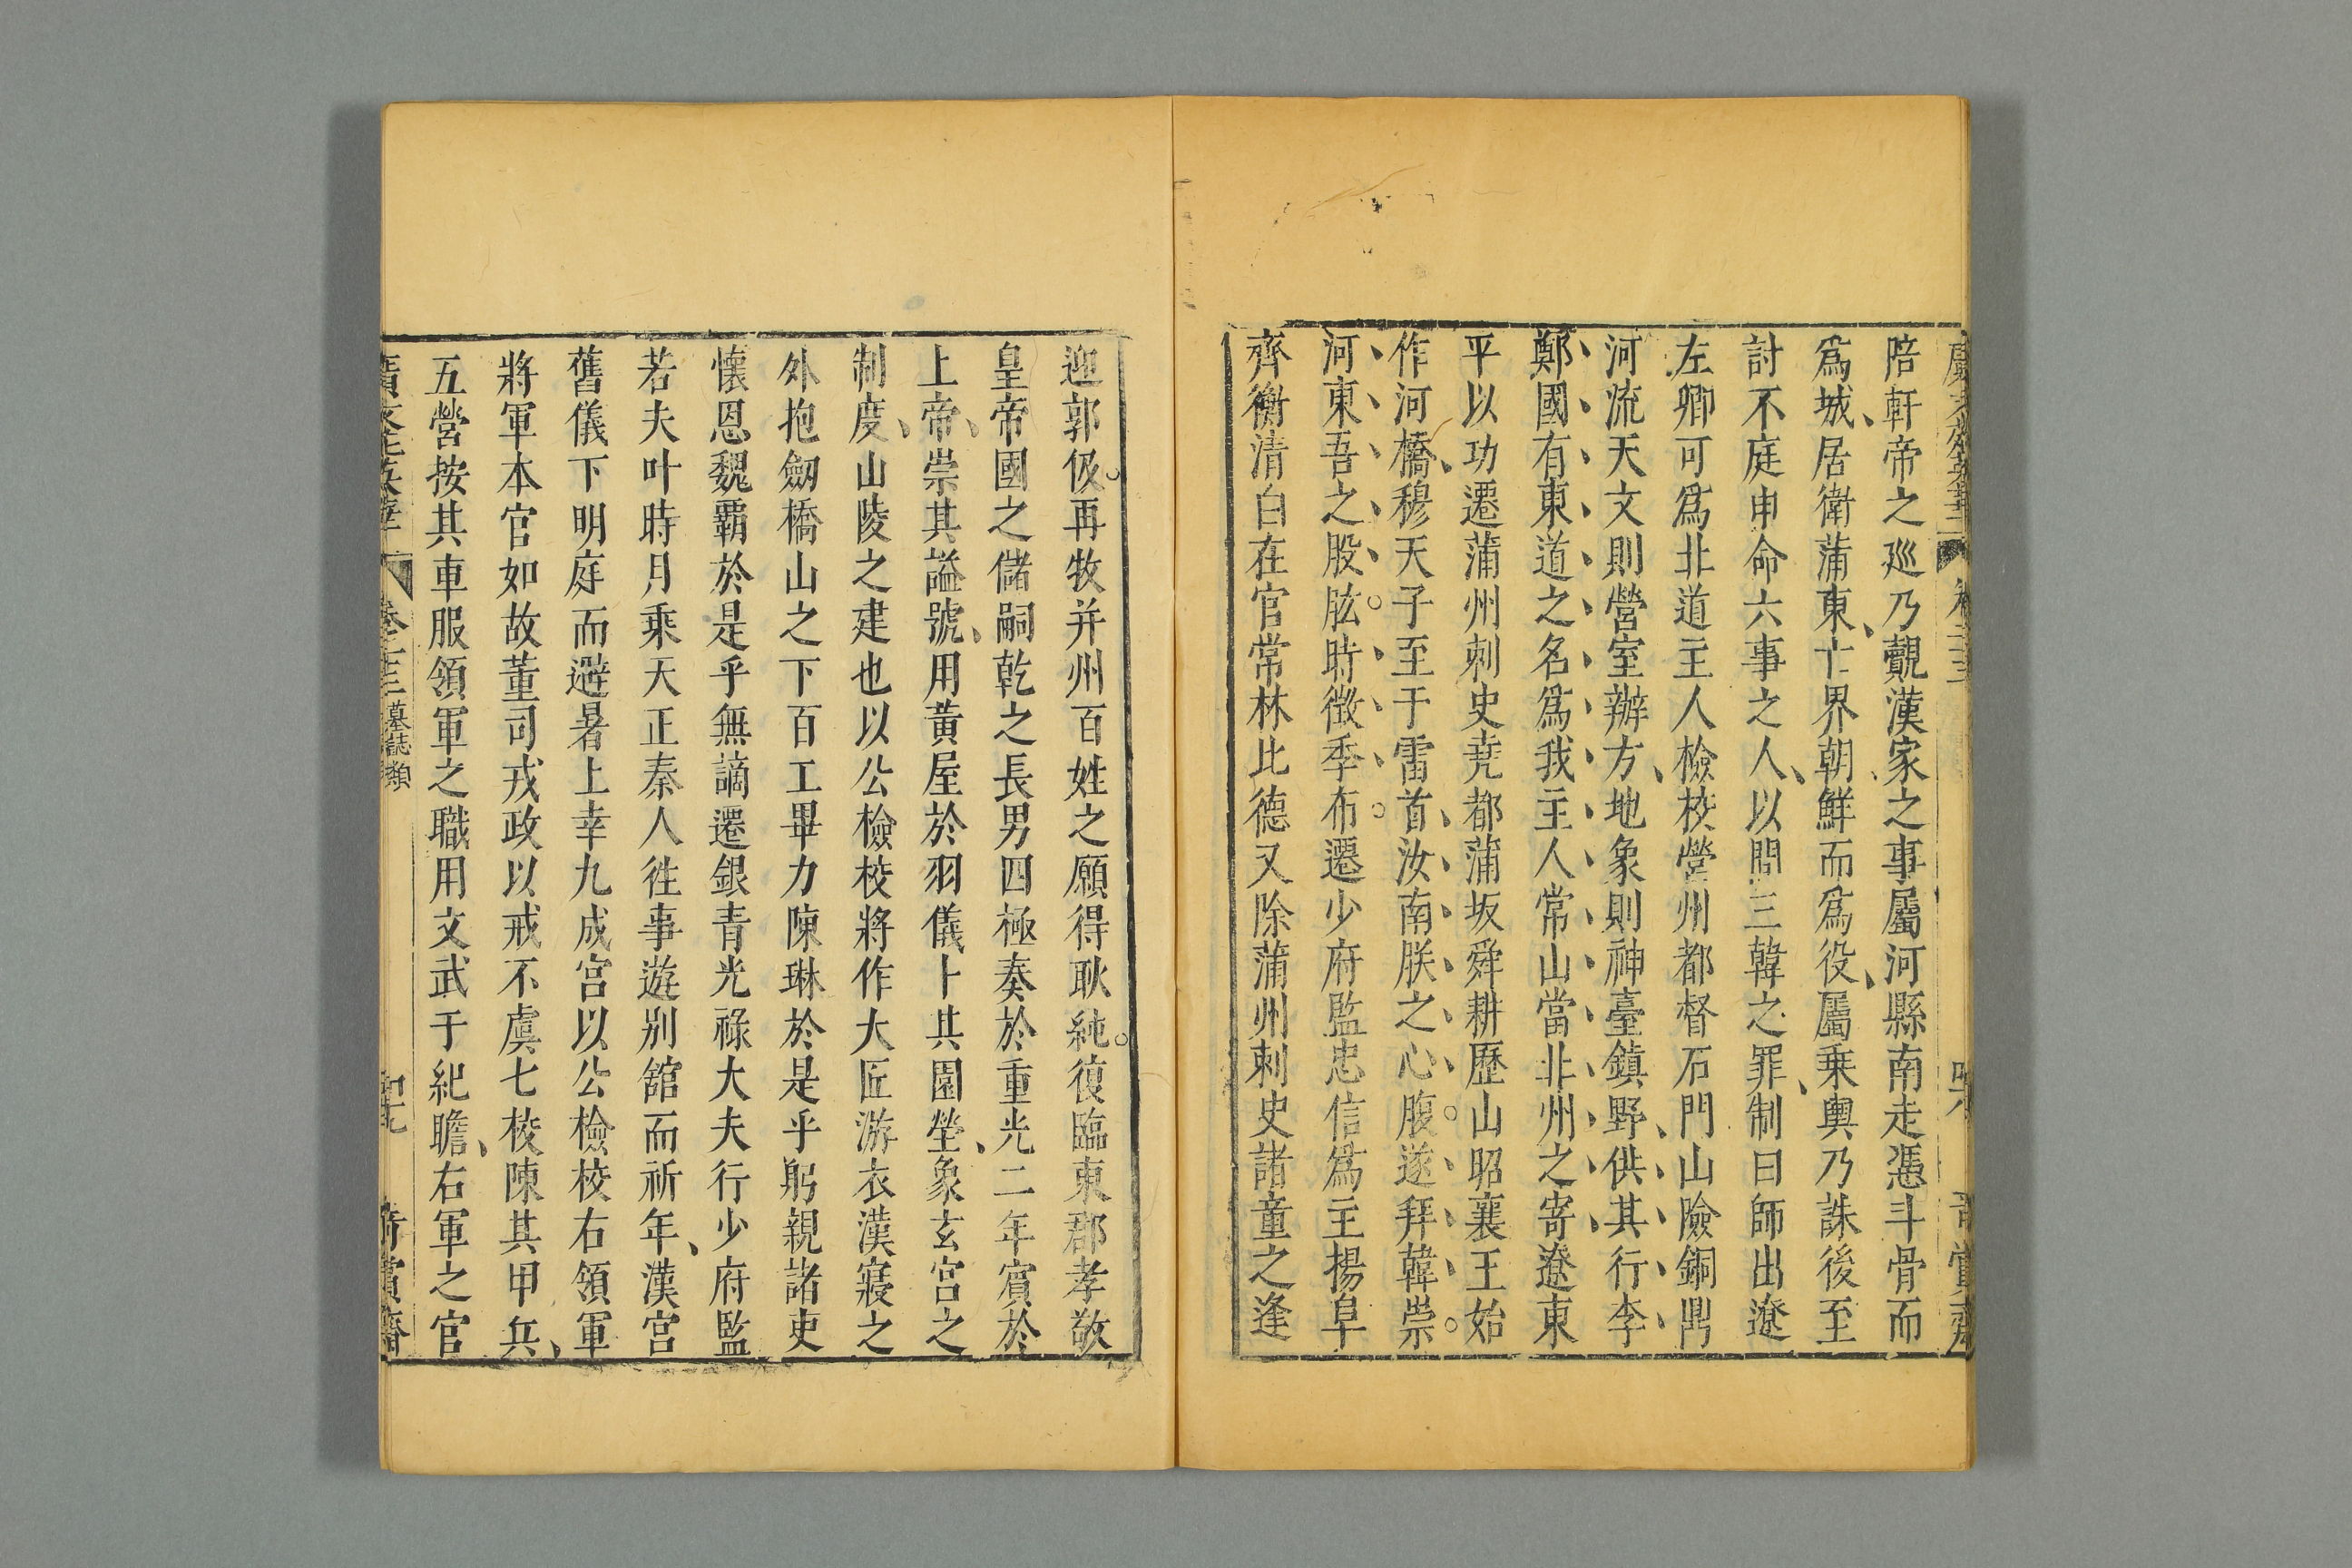 陪軒帝之廵乃覿漢家之事屬河縣南走憑斗骨而
爲城居衛蒲東亡界朝鮮而爲役屬乗輿乃誅後至
討不庭申命六事之人以問三韓之罪制曰師出遼
左卿可爲北道主人檢校營州都督石門山險銅鼎
河流天文則營室辦方地象則神臺鎮野供其行李
鄭國有東道之名爲我主人常山當北州之寄遼東
平以功遷蒲州刺史堯都蒲坂舜耕歷山昭襄王始
作河橋穆天子至于雷首汝南朕之心腹遂拜韓崇
河東吾之股肱時徵季布遷少府監忠信爲主揚阜
齊衡清白在官常林比德又除蒲州刺史諸童之逢
迎郭伋再牧并州百姓之願得耿純復臨東郡孝敬
皇帝國之儲嗣乾之長男四極奏於重光二年賓於
上帝崇其謚號用黄屋於羽儀卜其園塋象玄宮之
制度山陵之建也以公檢校將作大匠游衣漢寢之
外抱劒橋山之下百工畢力陳琳於是乎躬親諸吏
懷恩魏霸於是乎無謫遷銀青光祿大夫行少府監
若夫叶時月乘天正秦人徃事遊别舘而祈年漢宮
舊儀下明庭而避暑上幸九成宮以公檢校右領軍
將軍本官如故董司戎政以戒不虞七校陳其甲兵
五營按其車服領軍之職用文武于紀瞻右軍之官
廣文苑英華 卷二十三 墓誌類 四十九 奇賞齋